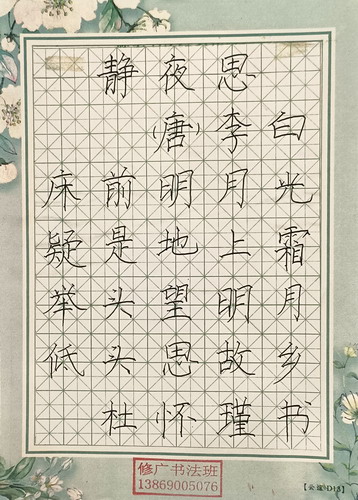 静夜思
(唐)李白
床前明月光
疑是地上霜
举头望明月
低头思故乡
杜怀瑾书
修广书法班
13869005076